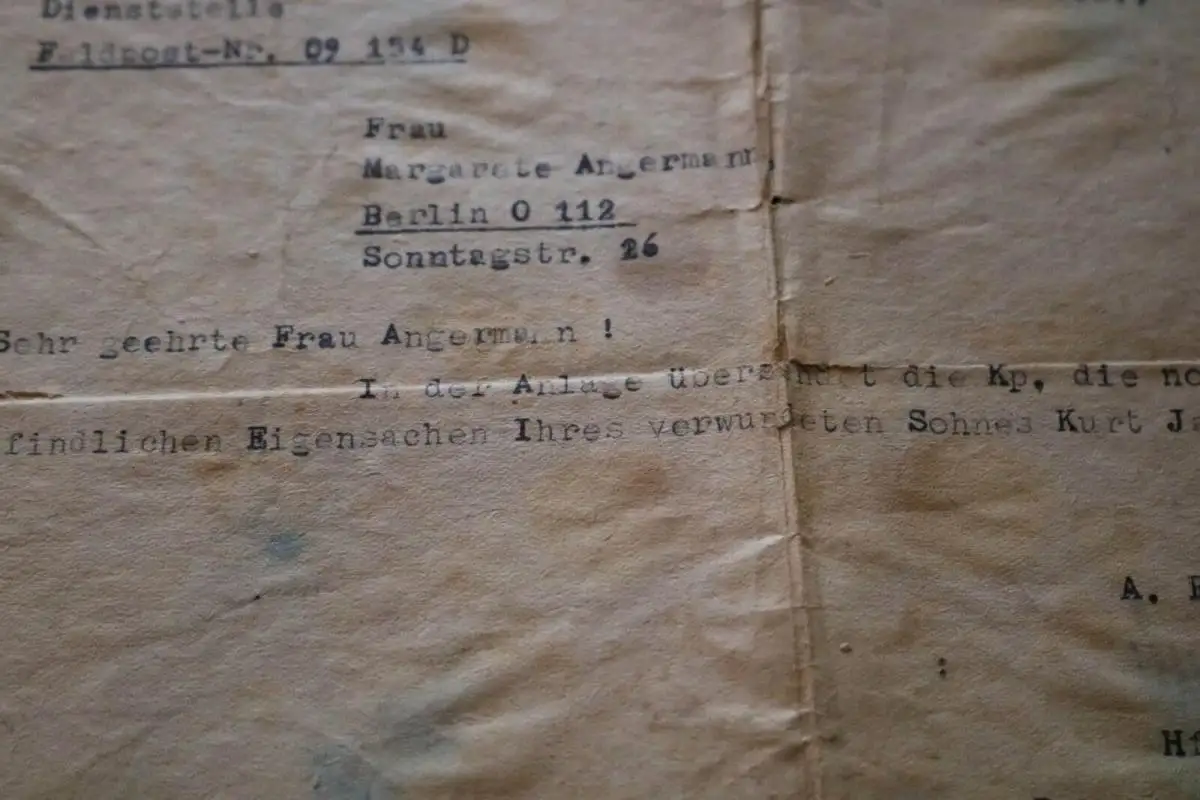 Dienststelle
Feldpost-Nr. 09 154 D
Frau
Margarete Angermann,
Berlin O 112
Sonntagstr. 26
Sehr geehrte Frau Angermann !
In der Anlage übersendet die Kp. die no
findlichen Eigensachen Ihres verwundeten Sohnes Kurt J
A.
Hf